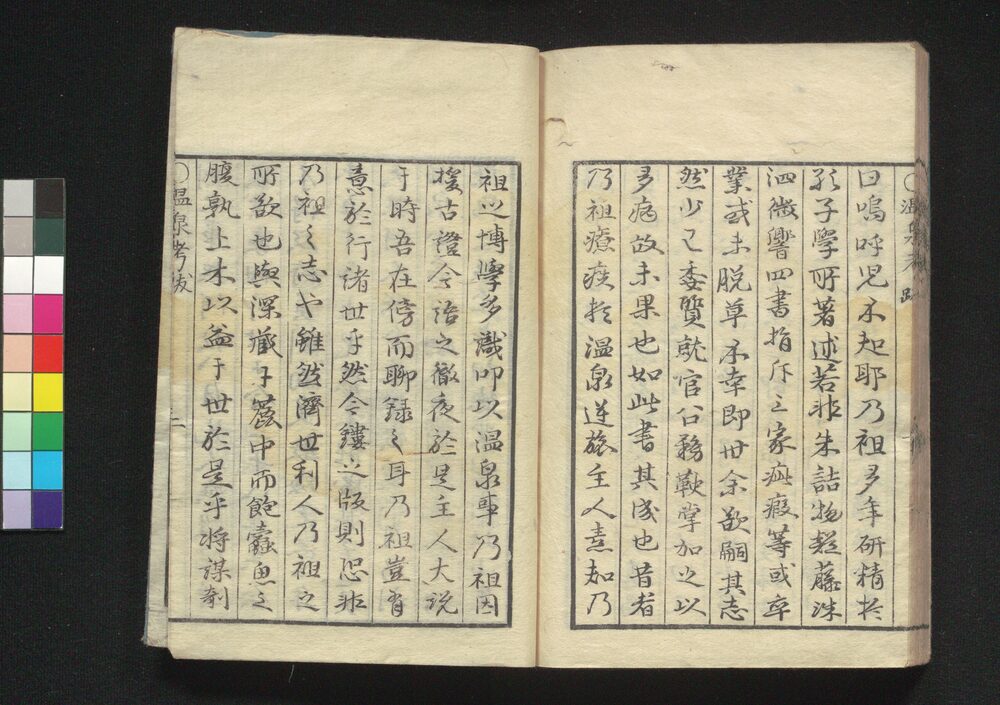 曰嗚呼児不知耶乃祖多年研精於
孔子學所著述若非朱詰物疑藤洙
泗微響四書指斥三家疵瑕等或卒
業或未脱草不幸即世余欲嗣其志
然少已委質就官公務鞅掌加之以
多病故未果也如此書其成也昔者
乃祖療疾於温泉逆旅主人素知乃
祖之博學多識叩以温泉事乃祖因
援古證今語之徹夜於是主人大説
于時吾在傍而聊録之耳乃祖豈有
意於行諸世乎然今鏤之版則恐非
乃祖之志也雖然濟世利人乃祖之
所欲也與深藏于簏中而飽蠹魚之
腹孰上木以益于世於是乎將謀剞
〇温泉考跋
二